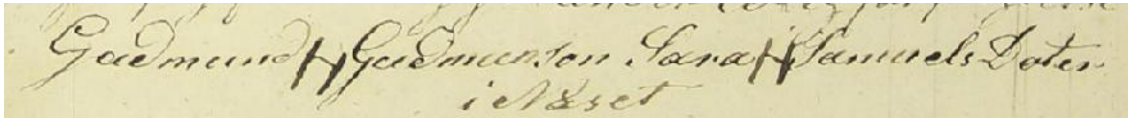 Gudmund H Gudmunson Sara H Samuels Doter
i Näset